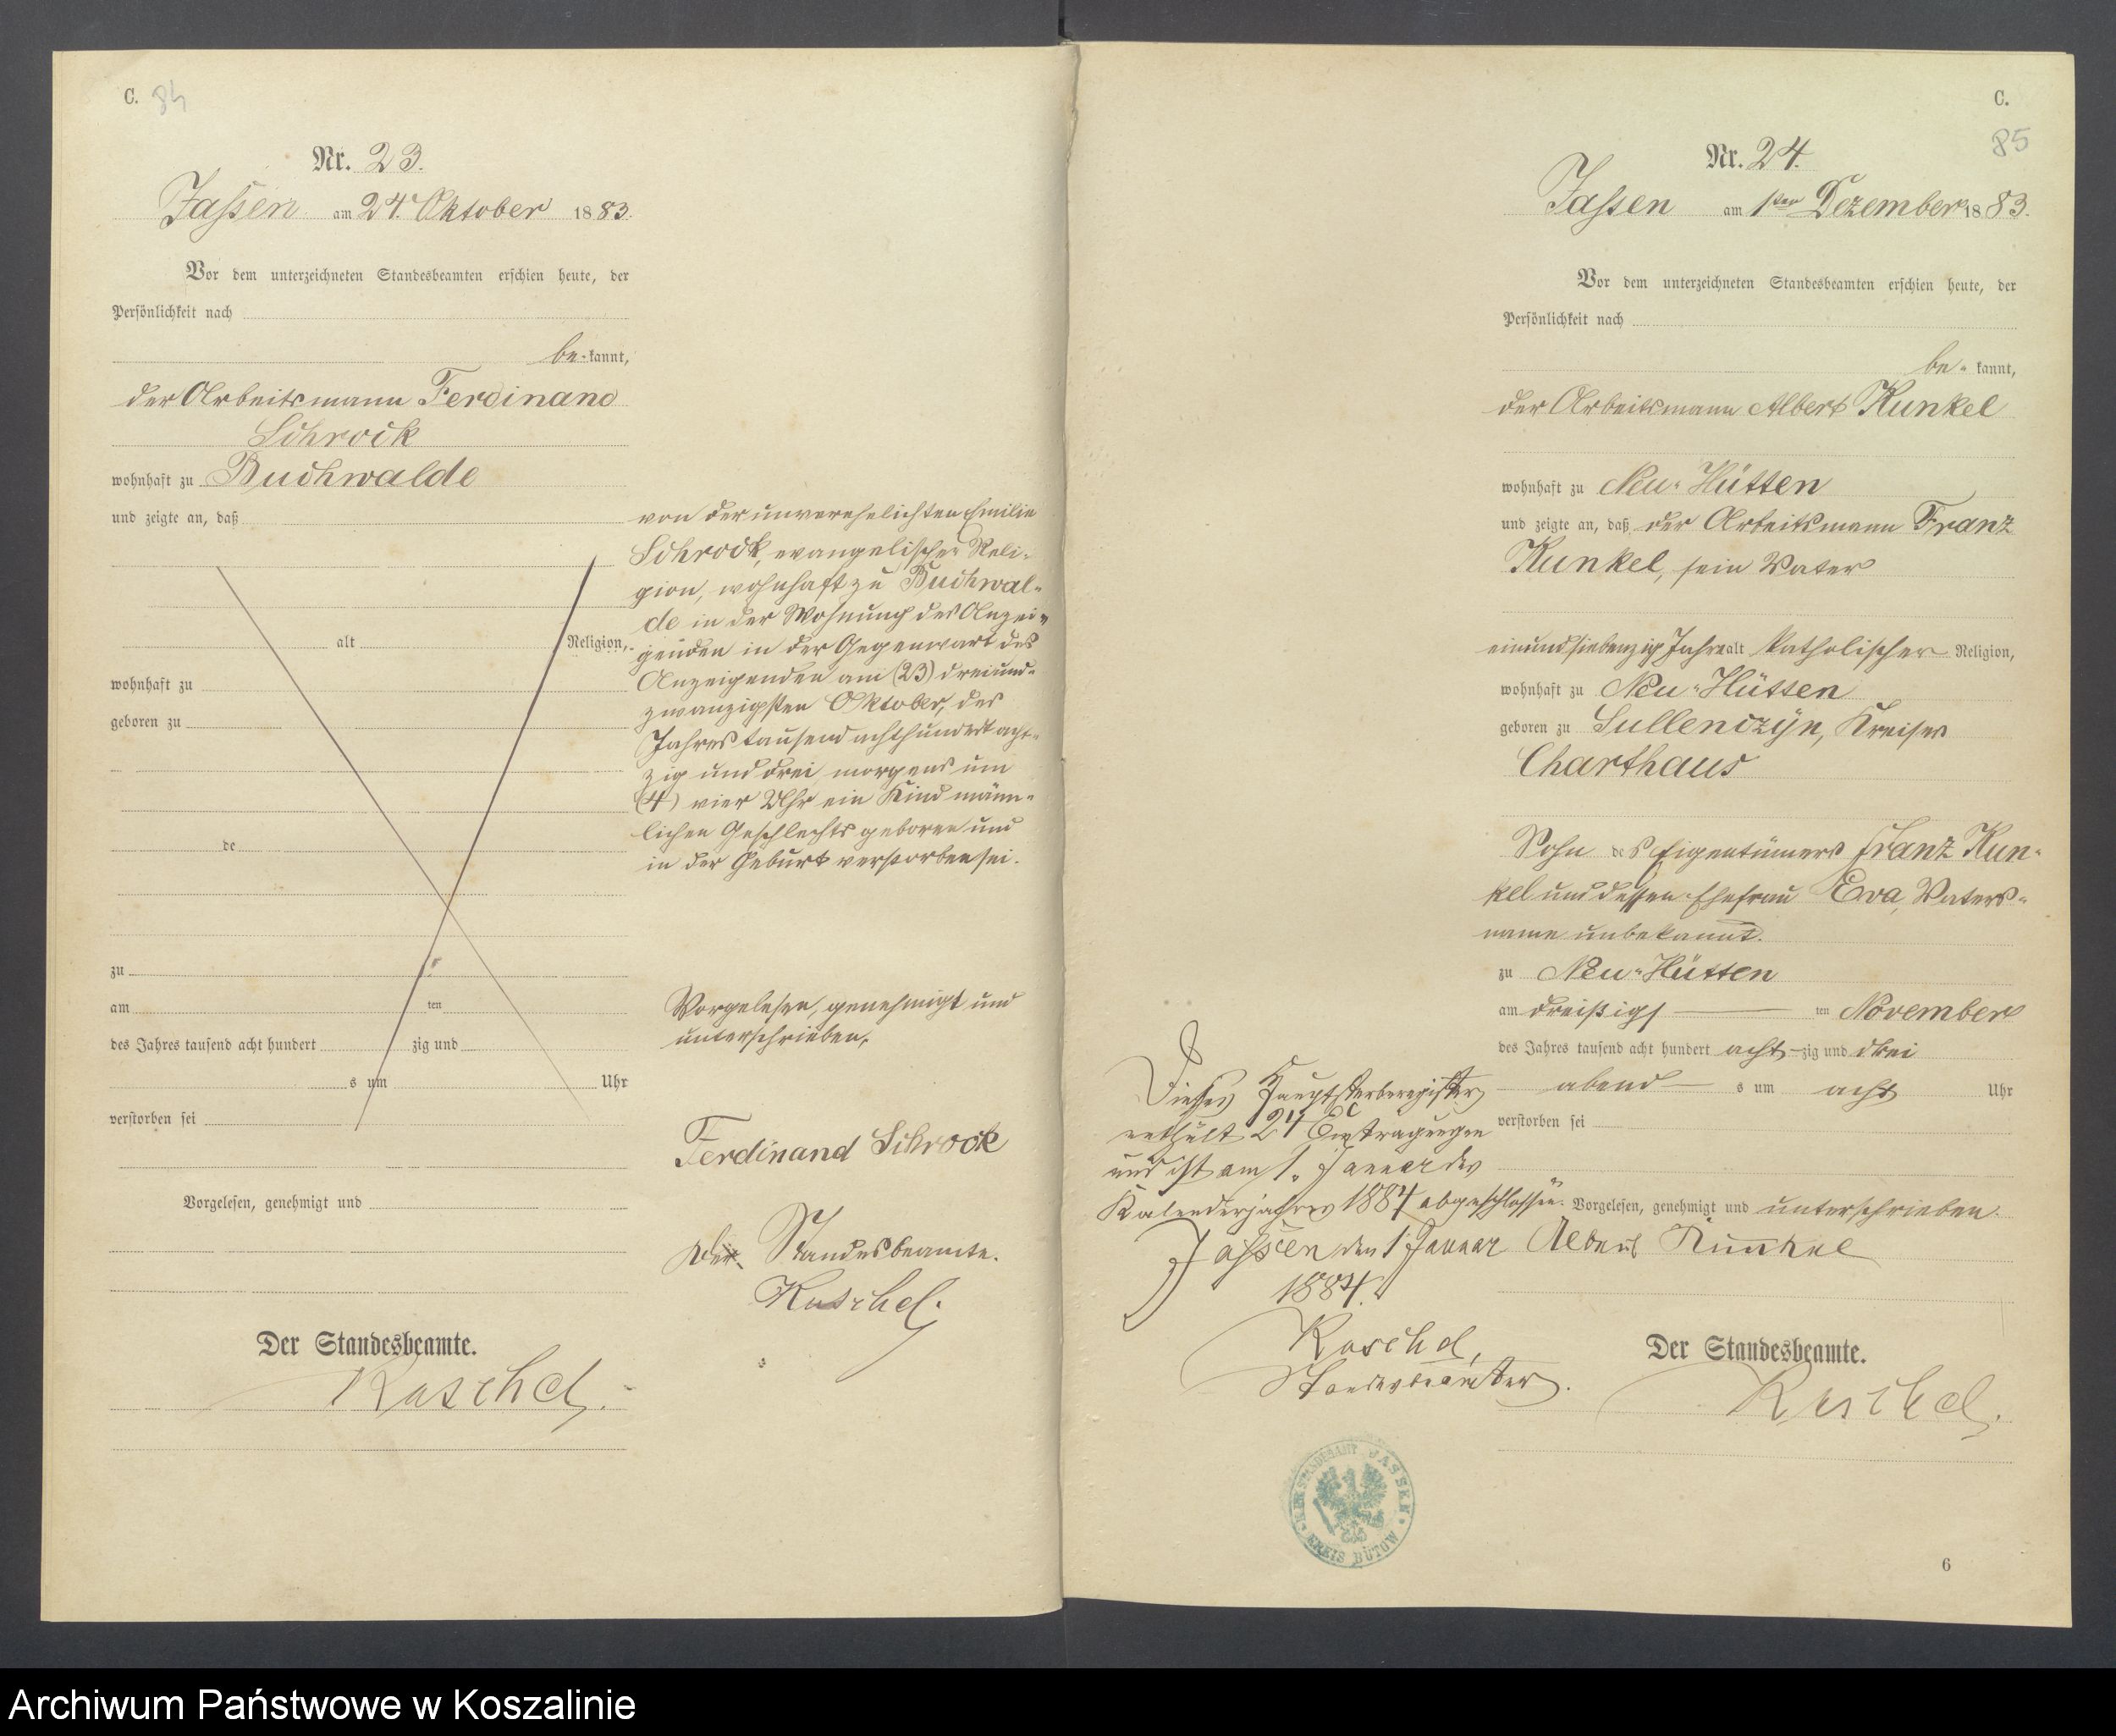 C. 84
Nr. 23.
Jassen am 24. Oktober 1883.
Vor dem unterzeichneten Standesbeamten erschien heute, der
Persönlichkeit nach
be- kannt,
der Arbeitsmann Ferdinand
Schrock
wohnhaft zu Buchwalde
und zeigte an, daß
alt Religion,
wohnhaft zu
geboren zu
de
zu
am ten
des Jahres tausend acht hundert zig und
s um Uhr
verstorben sei
Vorgelesen, genehmigt und
Der Standesbeamte.
Kuschel.
von der unverehelichten Emilie
Schrock, evangelischer Reli-
gion, wohnhaft zu Buchwal-
de in der Wohnung des Anzei-
genden in der Gegenwart des
Anzeigenden am (23) dreiund-
zwanzigsten Oktober, des
Jahres tausend achthundert acht-
zig und drei morgens um
(4) vier Uhr ein Kind männ-
lichen Geschlechts geboren und
in der Geburt verstorben sei.
Vorgelesen, genehmigt und
unterschrieben.
Ferdinand Schrock
Der Standesbeamte.
Kuschel.
C.
85
Nr. 24.
Jassen am 1ten Dezember 1883.
Vor dem unterzeichneten Standesbeamten erschien heute, der
Persönlichkeit nach
be- kannt,
der Arbeitsmann Albert Kunkel
wohnhaft zu Neu-Hütten
und zeigte an, daß der Arbeitsmann Franz
Kunkel, sein Vater
einundsiebenzig Jahre alt katholischer Religion,
wohnhaft zu Neu-Hütten
geboren zu Sullenczyn, Kreises
Charthaus
Sohn des Eigentümers Franz Kun-
kel und dessen Ehefrau Eva, Vaters-
name unbekannt.
zu Neu-Hütten
am dreißigs ten November
des Jahres tausend acht hundert acht zig und drei
abend s um acht Uhr
verstorben sei
Vorgelesen, genehmigt und unterschrieben.
Albert Kunkel
Der Standesbeamte.
Kuschel.
Dieses Hauptsterberegister
enthält 24 Eintragungen
und ist am 1. Januar des
Kalenderjahres 1884 abgeschlossen.
Jassen den 1 Januar
1884.
Kuschel,
Standesbeamter.
STANDESAMT JASSEN
KREIS BÜTOW
6
Archiwum Państwowe w Koszalinie